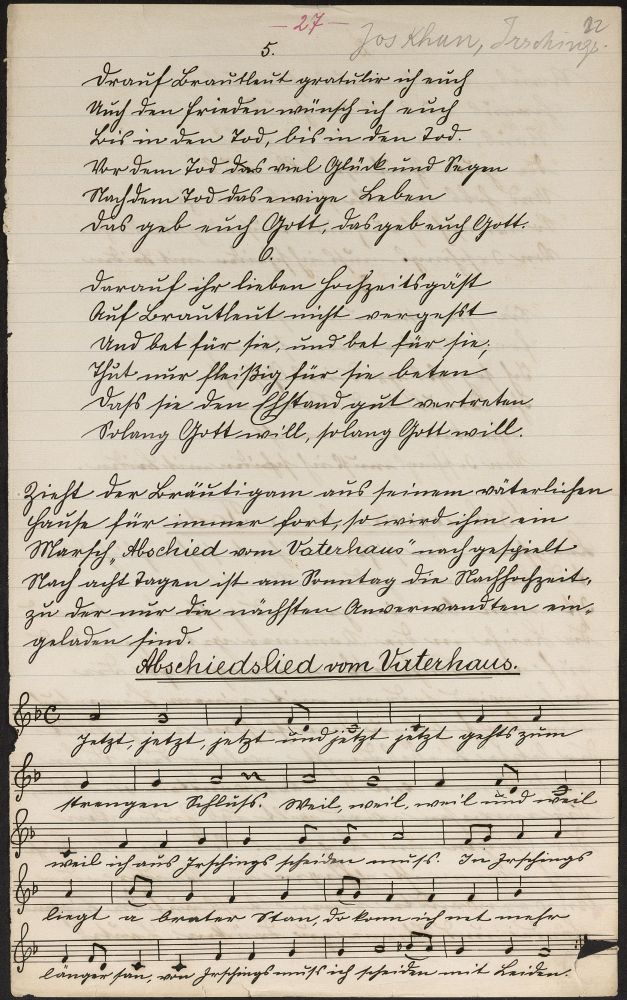 - 27 -
22
Jos Khun, Irschings.
5.
Drauf Brautleut gratulir ich euch
Auch den Frieden wünsch ich euch
Bis in den Tod, bis in den Tod.
Vor dem Tod das viel Glück und Segen
Nach dem Tod das ewige Leben
Das geb euch Gott, das geb euch Gott.
6.
Darauf ihr lieben Hochzeitsgäst
Auf Brautleut nicht vergesst
Und bet für sie, und bet für sie;
Thut nur fleißig für sie beten
Dass sie den Ehstand gut vertreten
Solang Gott will, solang Gott will.
Zieht der Bräutigam aus seinem väterlichen
Hause für immer fort, so wird ihm ein
Marsch „Abschied vom Vaterhaus" nach gespielt
Nach acht Tagen ist am Sonntag die Nachhochzeit,
zu der nur die nächsten Anverwandten ein-
geladen sind.
Abschiedslied vom Vaterhaus.
Jetzt, jetzt, jetzt und jetzt jetzt gehts zum
strengen Schluss. Weil, weil, weil und weil
weil ich aus Irschings scheiden muss. In Irschings
liegt a brater Stan, do konn ich net mehr
länger san, von Irschings muss ich scheiden mit Leiden.